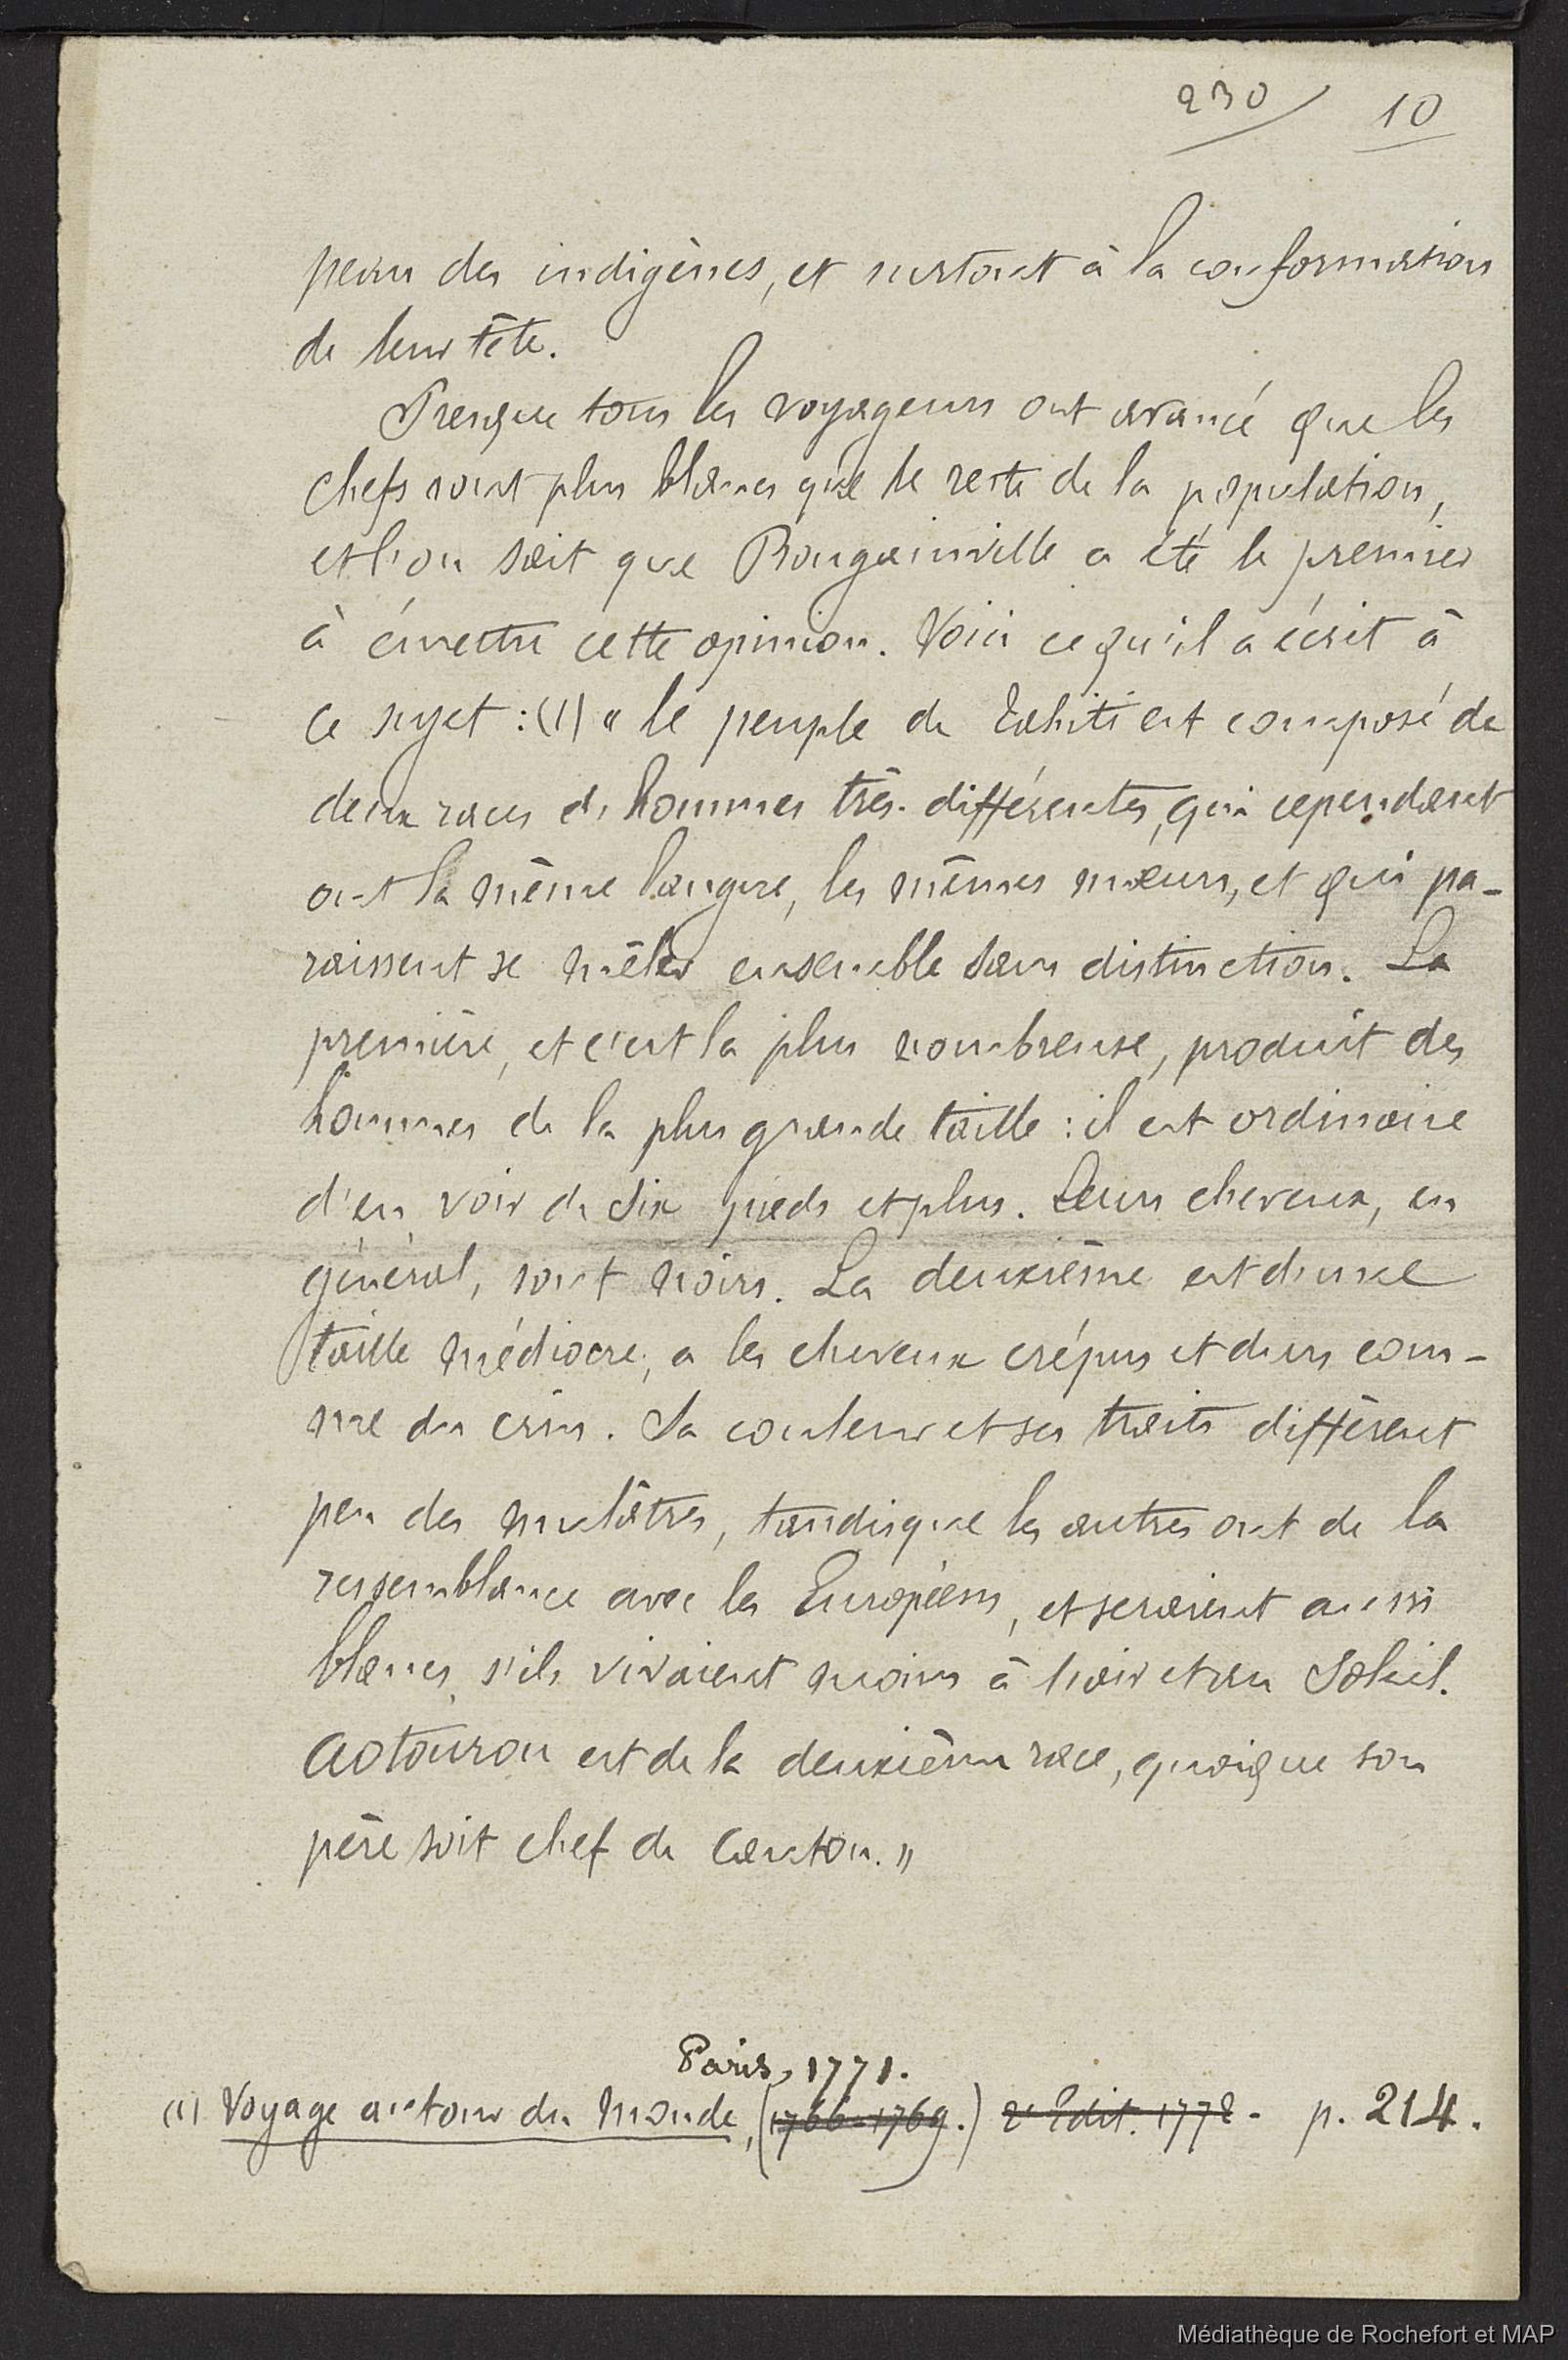 230 10
peau des indigènes, et surtout à la conformation
de leur tête.
Presque tous les voyageurs ont avancé que les
chefs sont plus blancs que le reste de la population,
et l'on sait que Bougainville a été le premier
à émettre cette opinion. Voici ce qu'il a écrit à
ce sujet : (1) « le peuple de Tahiti est composé de
deux races d'hommes très-différentes, qui cependant
ont la même langue, les mêmes mœurs, et qui pa-
raissent se mêler ensemble sans distinction. La
première, et c'est la plus nombreuse, produit des
hommes de la plus grande taille : il est ordinaire
d'en voir de six pieds et plus. Leurs cheveux, en
général, sont noirs. La deuxième est d'une
taille médiocre, a les cheveux crépus et durs com-
me du crin. Sa couleur et ses traits diffèrent
peu des mulâtres, tandisque les autres ont de la
ressemblance avec les Européens, et seraient aussi
blancs, s'ils vivaient moins à l'air et au Soleil.
Aotourou est de la deuxième race, quoique son
père soit chef de Canton. »
Paris, 1771.
(1) Voyage autour du Monde, (1766-1769.) 2e Edit. 1772 - p. 214.
Médiathèque de Rochefort et MAP